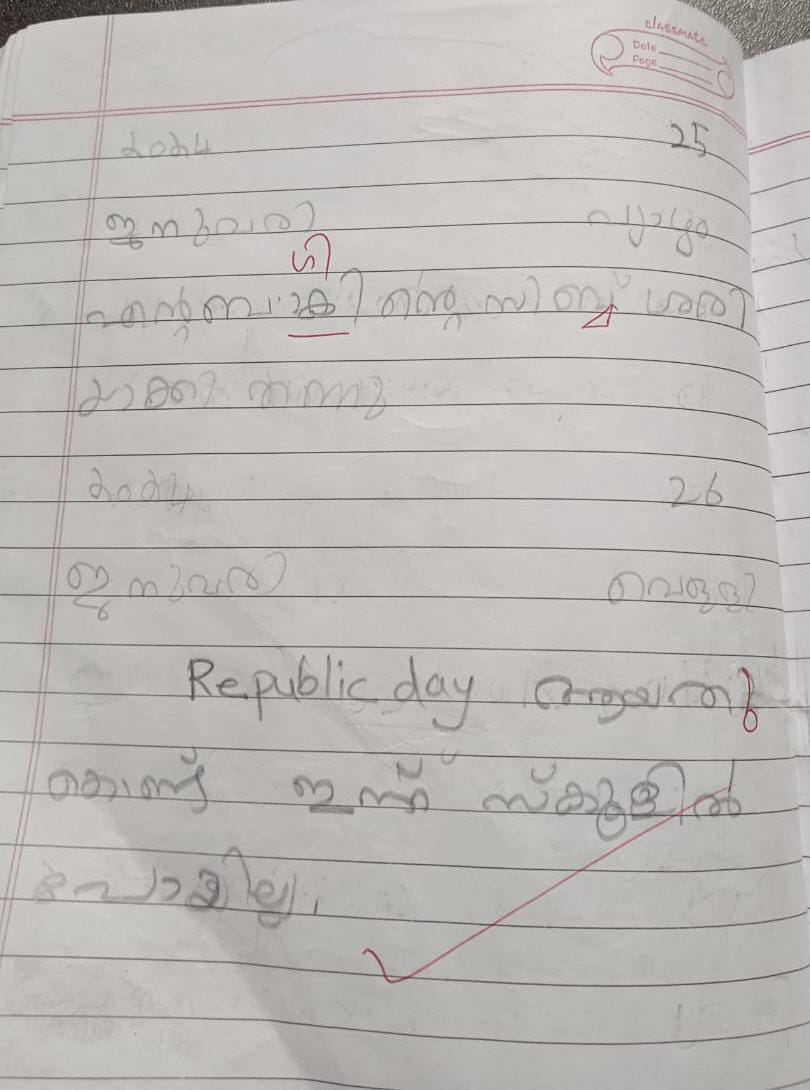 classmate
Date
Page
2024 25
ജനുവരി വ്യാഴം
ഗി
എന്റെ ബാകിന്റെ സിബ്ബ് ശരി
യാക്കി തന്നു
2024 26
ജനുവരി വെള്ളി
Republic day ആയതു
കൊണ്ട് ഇന്ന് സ്കൂളിൽ
പോയില്ല.